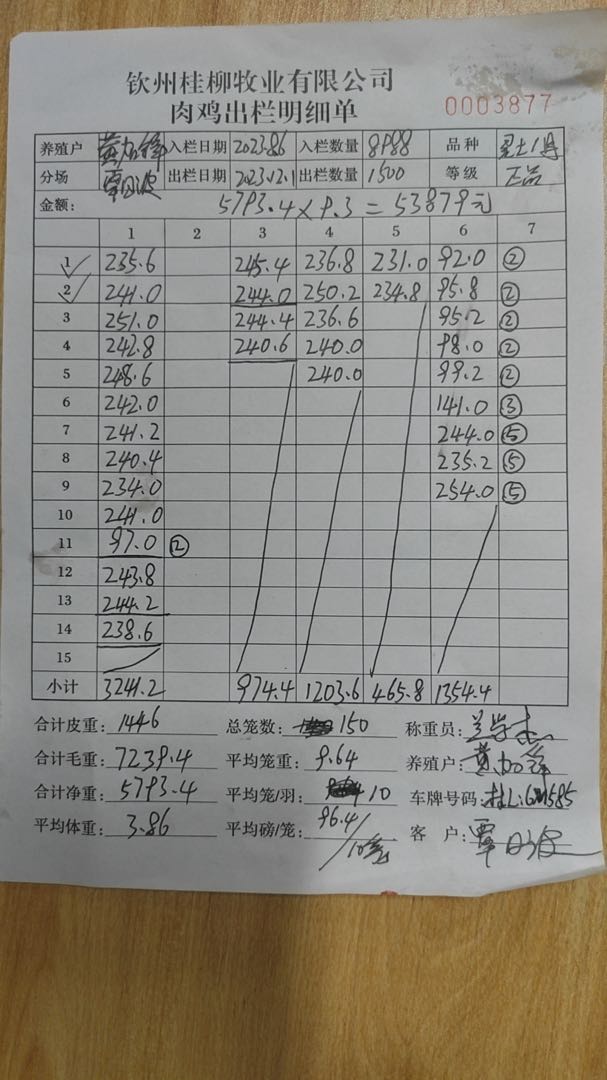 钦州桂柳牧业有限公司
肉鸡出栏明细单
0003877
养殖户 入栏日期 2023.8.6 入栏数量 8988 品种
分场 出栏日期 2023.12.1 出栏数量 1500 等级 正品
金额: 5793.4×9.3=53879元
1 2 3 4 5 6 7
1 235.6 245.4 236.8 231.0 92.0 ②
2 241.0 244.0 250.2 234.8 95.8 ②
3 251.0 244.4 236.6 95.2 ②
4 242.8 240.6 240.0 98.0 ②
5 248.6 240.0 99.2 ②
6 242.0 141.0 ③
7 241.2 244.0 ⑤
8 240.4 235.2 ⑤
9 234.0 254.0 ⑤
10 241.0
11 97.0 ②
12 243.8
13 244.2
14 238.6
15
小计 3241.2 974.4 1203.6 465.8 1354.4
合计皮重: 1446 总笼数: 150 称重员:
合计毛重: 7239.4 平均笼重: 9.64 养殖户:
合计净重: 5793.4 平均笼/羽: 10 车牌号码:
平均体重: 3.86 平均磅/笼: 96.4/10笼 客户: